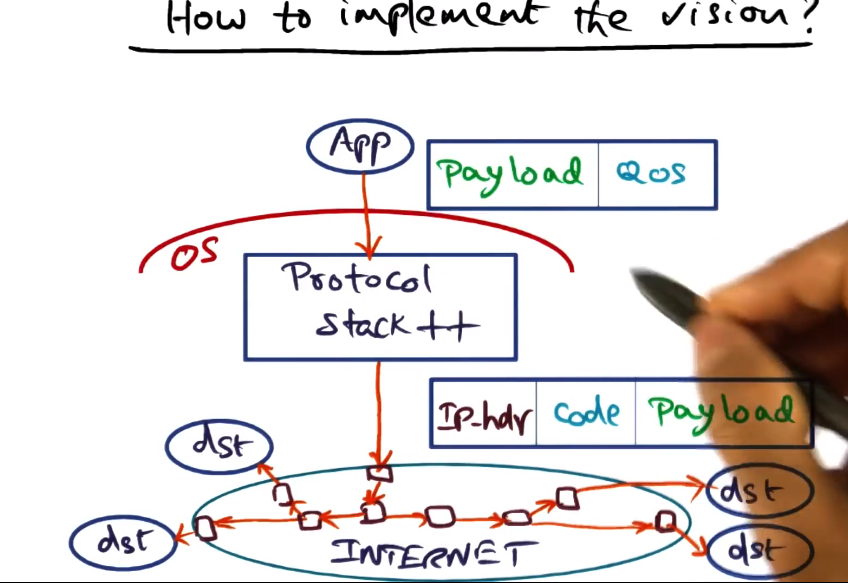 How to implement the vision?
App
Payload QOS
OS
Protocol
Stack++
IP-hdr Code Payload
dst
dst
dst
dst
INTERNET